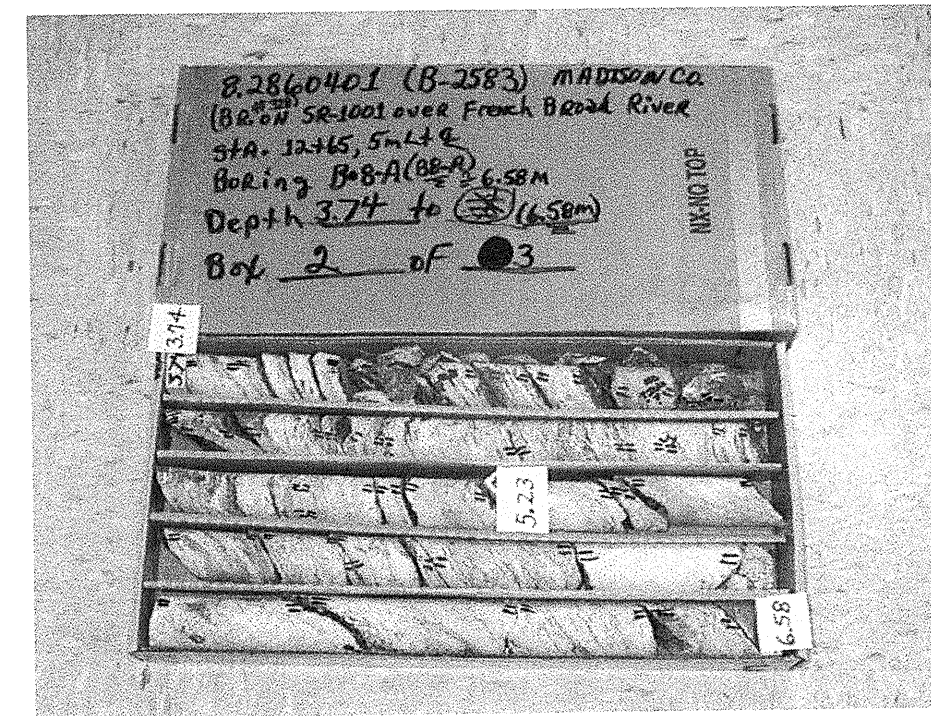 8.2860401 (B-2583) MADISON CO.
(BR. ON SR-1001 over French Broad River
StA. 12+65, 5m Lt &
Boring B-8-A (B8-A)
6.58M
Depth 3.74 to (6.58m)
Box 2 of 3
NX-NQ TOP
3.74
5.23
6.58